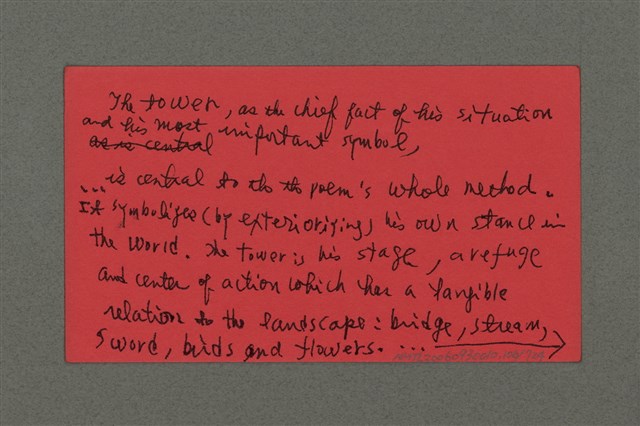 The tower, as the chief fact of his situation
and his most important symbol,
as is central
... is central to th th poem's whole method.
It symbolizes (by exteriorizing) his own stance in
the world. The tower is his stage, a refuge
and center of action which has a tangible
relation to the landscape: bridge, stream,
sword, birds and flowers. ...